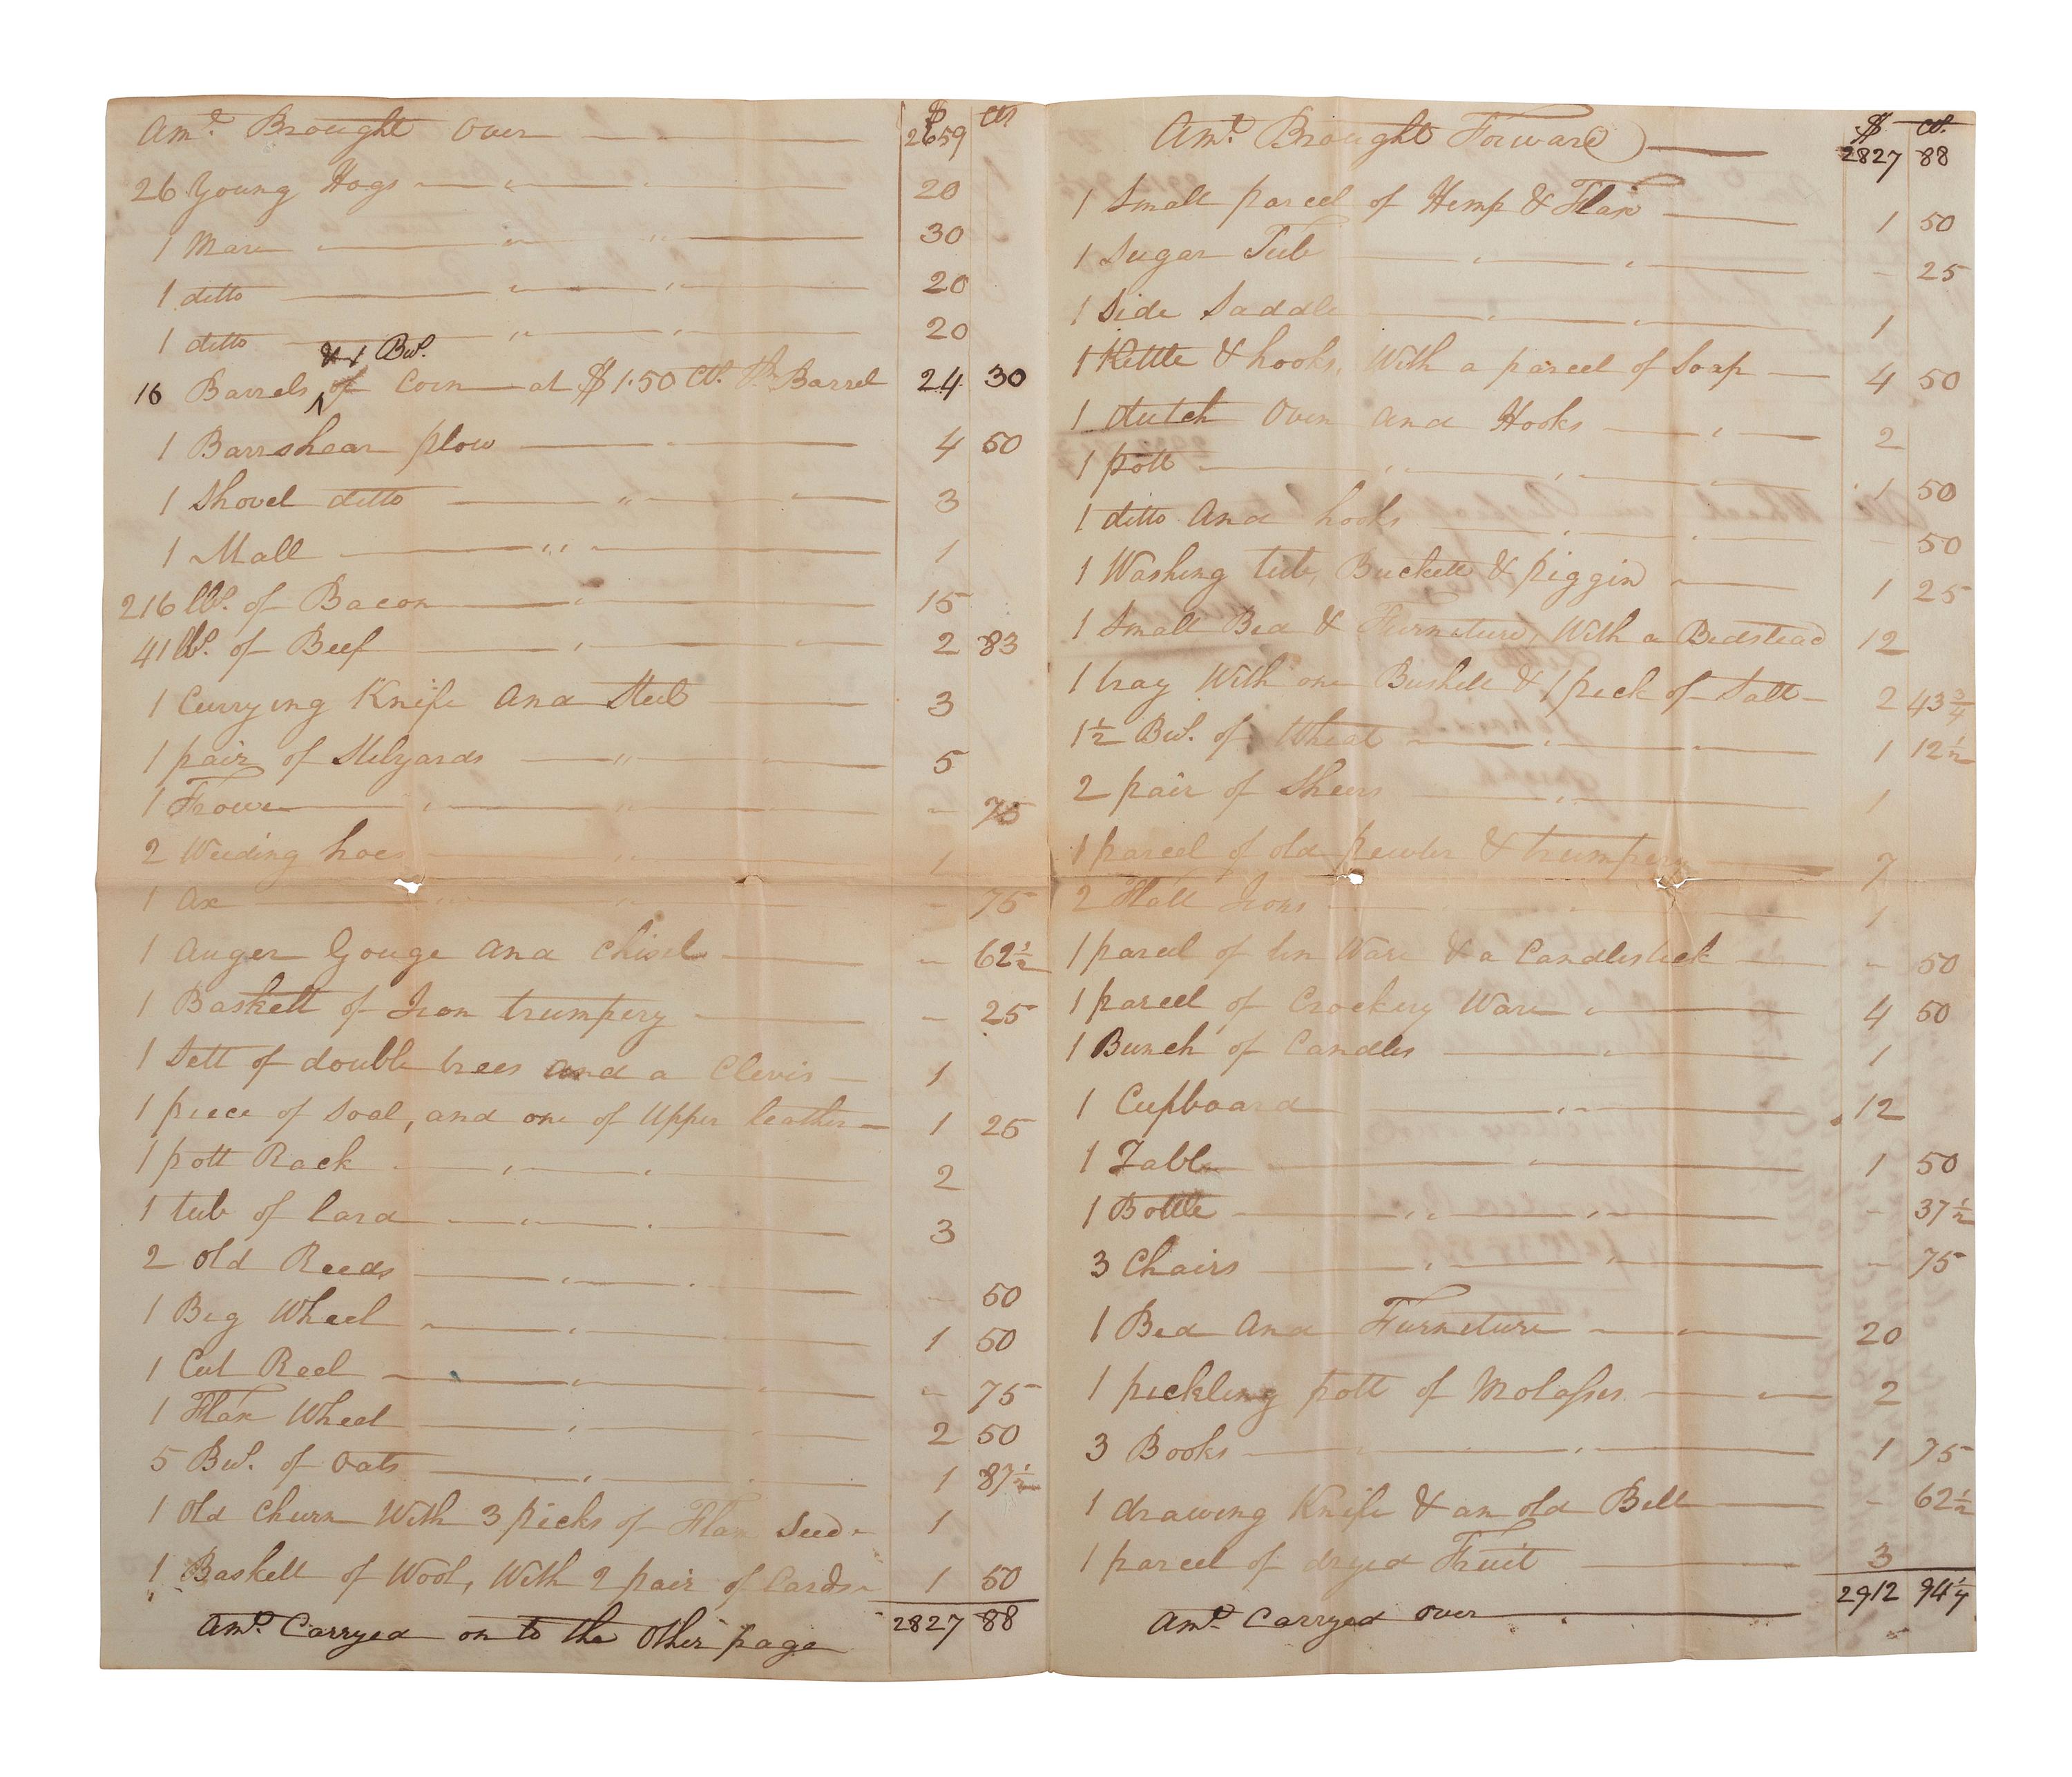 Amt. Brought Over $ Cts
2659
26 Young Hogs 20
1 Mare 30
1 ditto 20
1 ditto 20
& 1 Bul.
16 Barrels of Corn at $1.50 Cts. Pr. Barrel 24 30
1 Barrshear plow 4 50
1 Shovel ditto 3
1 Mall 1
216 lbs. of Bacon 15
41 lbs. of Beef 2 83
1 Currying Knife and Steel 3
1 pair of Stilyards 5
1 Frowe - 75
2 Weeding hoes 1
1 Ax - 75
1 Auger Gouge and Chisel - 62½
1 Baskett of Iron trumpery - 25
1 Sett of double trees and a Clevis 1
1 piece of Soal, and one of Upper leather 1 25
1 pott Rack 2
1 tub of lard 3
2 Old Reeds - 50
1 Big Wheel 1 50
1 Cut Reel - 75
1 Flax Wheel 2 50
5 Bul. of Oats 1 87½
1 Old Churn With 3 picks of Flax Seed 1
1 Baskett of Wool, With 2 pair of Cards 1 50
Amt. Carryed on to the Other page 2827 88
Amt. Brought Forward $ Ct.
2827 88
1 Small parcel of Hemp & Flax 1 50
1 Sugar Tub - 25
1 Side Saddle 1
1 Kettle & hooks, With a parcel of Soap 4 50
1 dutch Oven and Hooks 2
1 pott 1 50
1 ditto and hooks - 50
1 Washing tub, Buckett & piggin 1 25
1 Small Bed & Furneture, With a Bedstead 12
1 tray With one Bushell & 1 peck of Salt 2 43¾
1½ Bul. of Wheat 1 12½
2 pair of Shears 1
1 parcel of old pewter & trumpery 7
2 Flatt Irons 1
1 parcel of tin Ware & a Candlestick - 50
1 parcel of Crockery Ware 4 50
1 Bunch of Candles 1
1 Cupboard 12
1 Table 1 50
1 Bottle - 37½
3 Chairs - 75
1 Bed and Furneture 20
1 pickling pott of Molasses 2
3 Books 1 75
1 drawing Knife & an old Bell - 62½
1 parcel of dryed Fruit 3
Amt. Carryed over 2912 94¼